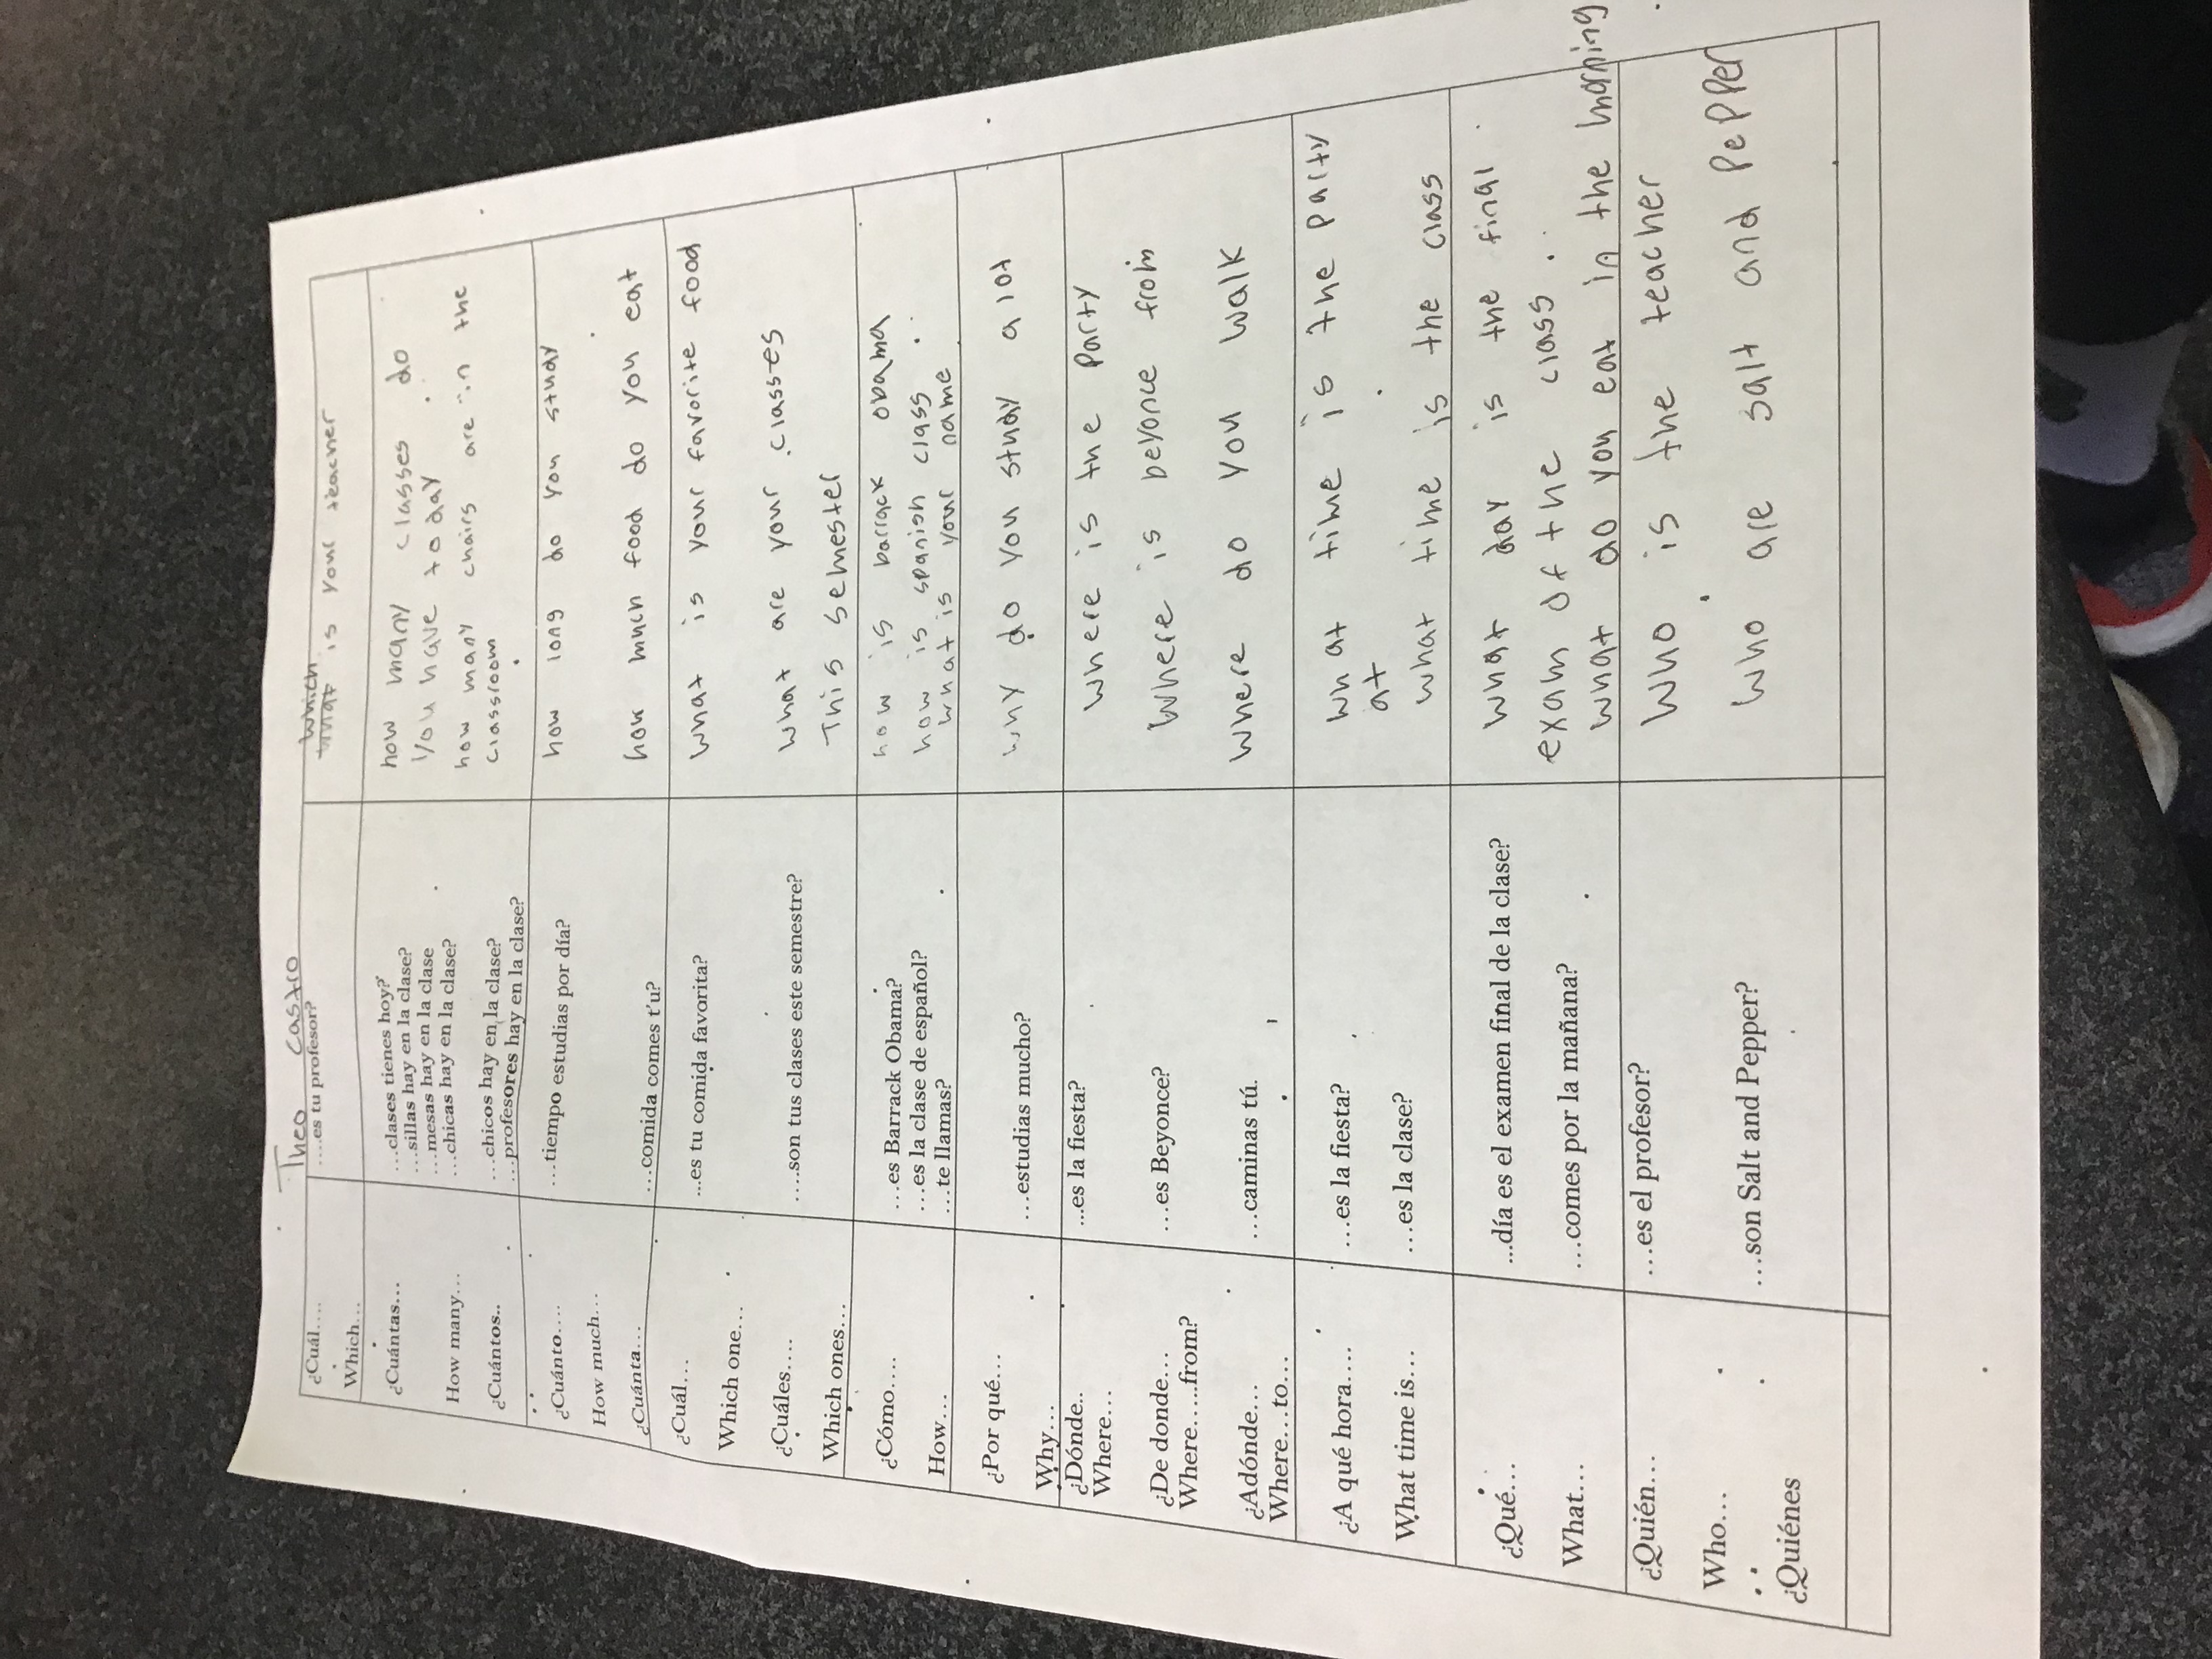 Theo Castro
¿Cuál….
Which…
….es tu profesor?
which
what is your teacher
¿Cuántas…
How many…
¿Cuántos..
…clases tienes hoy?
…sillas hay en la clase?
…mesas hay en la clase
…chicas hay en la clase?
…chicos hay en la clase?
…profesores hay en la clase?
how many classes do
you have today
how many chairs are in the
classroom
¿Cuánto….
How much…
¿Cuánta…
….tiempo estudias por día?
….comida comes t'u?
how long do you study
how much food do you eat
¿Cuál…
Which one…
¿Cuáles….
Which ones…
...es tu comida favorita?
….son tus clases este semestre?
what is your favorite food
what are your classes
This semester
¿Cómo….
How…
….es Barrack Obama?
…es la clase de español?
…te llamas?
how is barrack obama
how is spanish class
what is your name
¿Por qué…
Why…
…estudias mucho?
why do you study a lot
¿Dónde..
Where…
¿De donde…
Where…..from?
¿Adónde…
Where…to…
...es la fiesta?
…es Beyonce?
….caminas tú.
where is the party
where is beyonce from
where do you walk
¿A qué hora….
What time is…
….es la fiesta?
….es la clase?
what time is the party
at
what time is the class
¿Qué…
What…
...día es el examen final de la clase?
….comes por la mañana?
what day is the final
exam of the class
what do you eat in the morning
¿Quién…
Who…
¿Quiénes
….es el profesor?
….son Salt and Pepper?
who is the teacher
who are salt and pepper